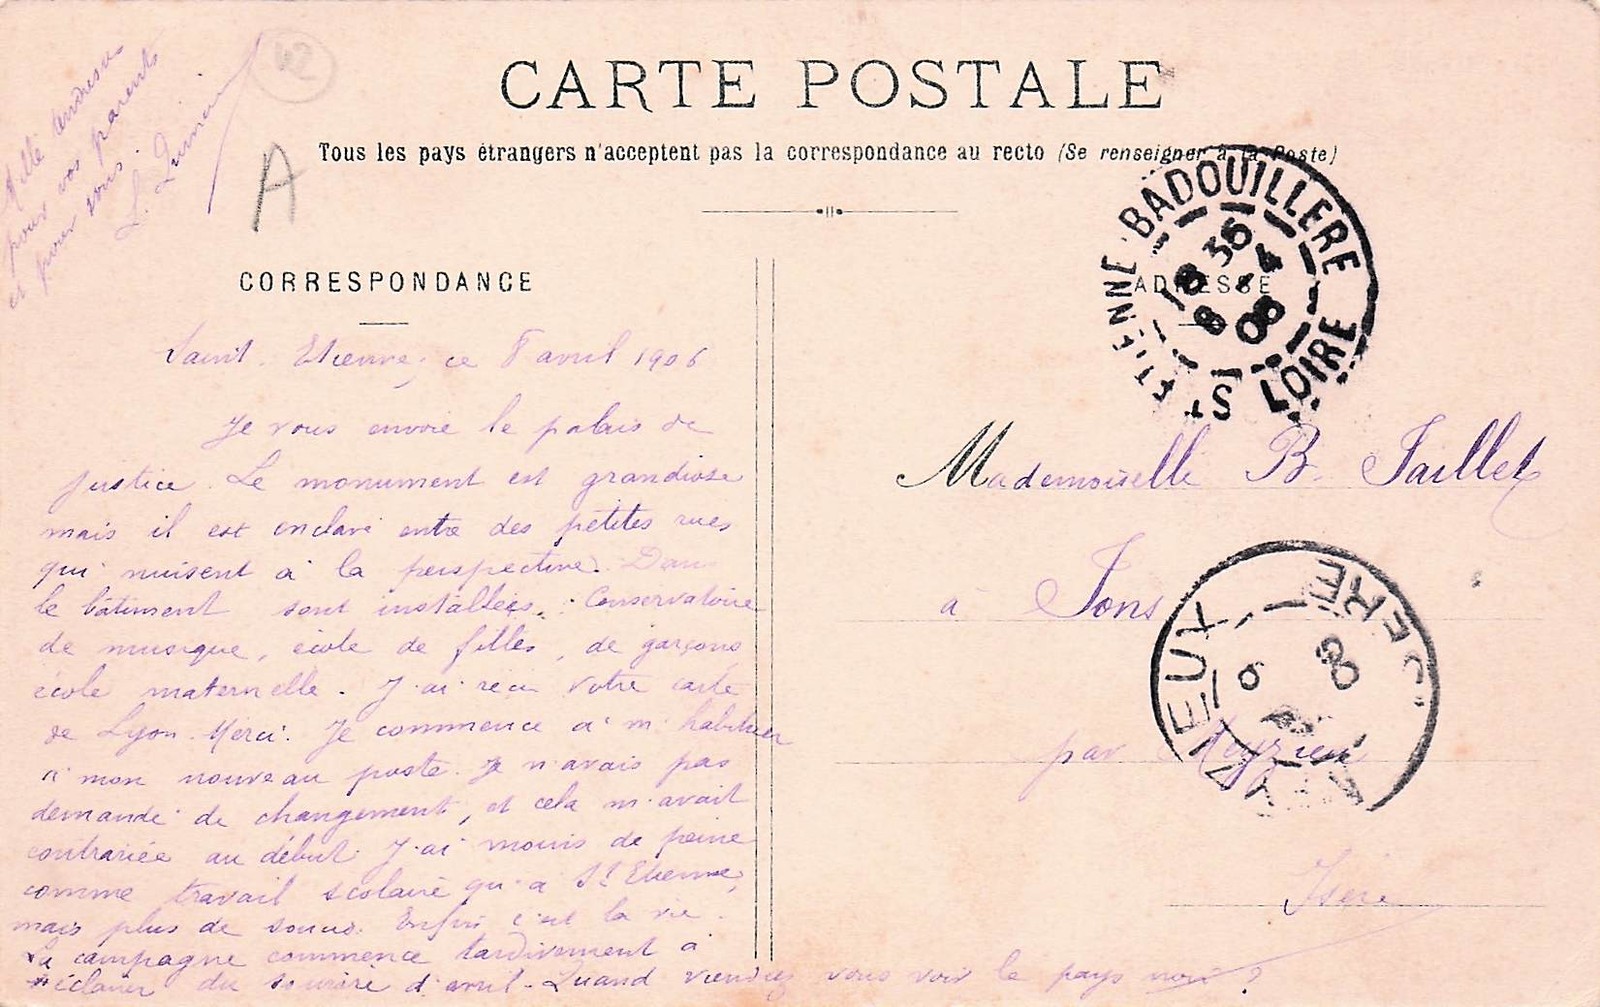 CARTE POSTALE
Tous les pays étrangers n'acceptent pas la correspondance au recto (Se renseigner à la Poste)
42
A
Mille tendresses
pour vos parents
et pour vous
CORRESPONDANCE
Saint-Etienne, ce 8 avril 1906
Je vous envoie le palais de
justice. Le monument est grandiose
mais il est enclavé entre des petites rues
qui nuisent à la perspective. Dans
le bâtiment sont installées : Conservatoire
de musique, école de filles, de garçons,
école maternelle. J'ai reçu votre carte
de Lyon. Merci. Je commence à m'habituer
à mon nouveau poste. Je n'avais pas
demandé de changement, et cela m'avait
contrariée au début. J'ai moins de peine
comme travail scolaire qu'à St Etienne,
mais plus de soucis. Enfin c'est la vie.
La campagne commence tardivement à
s'éclairer du sourire d'avril - Quand viendrez vous voir le pays noir ?
ADRESSE
ST ETIENNE-BADOUILLERE
18 36
8 -4
06
LOIRE
Mademoiselle B. Taillet
à Jons
par Meyzieu
Isère